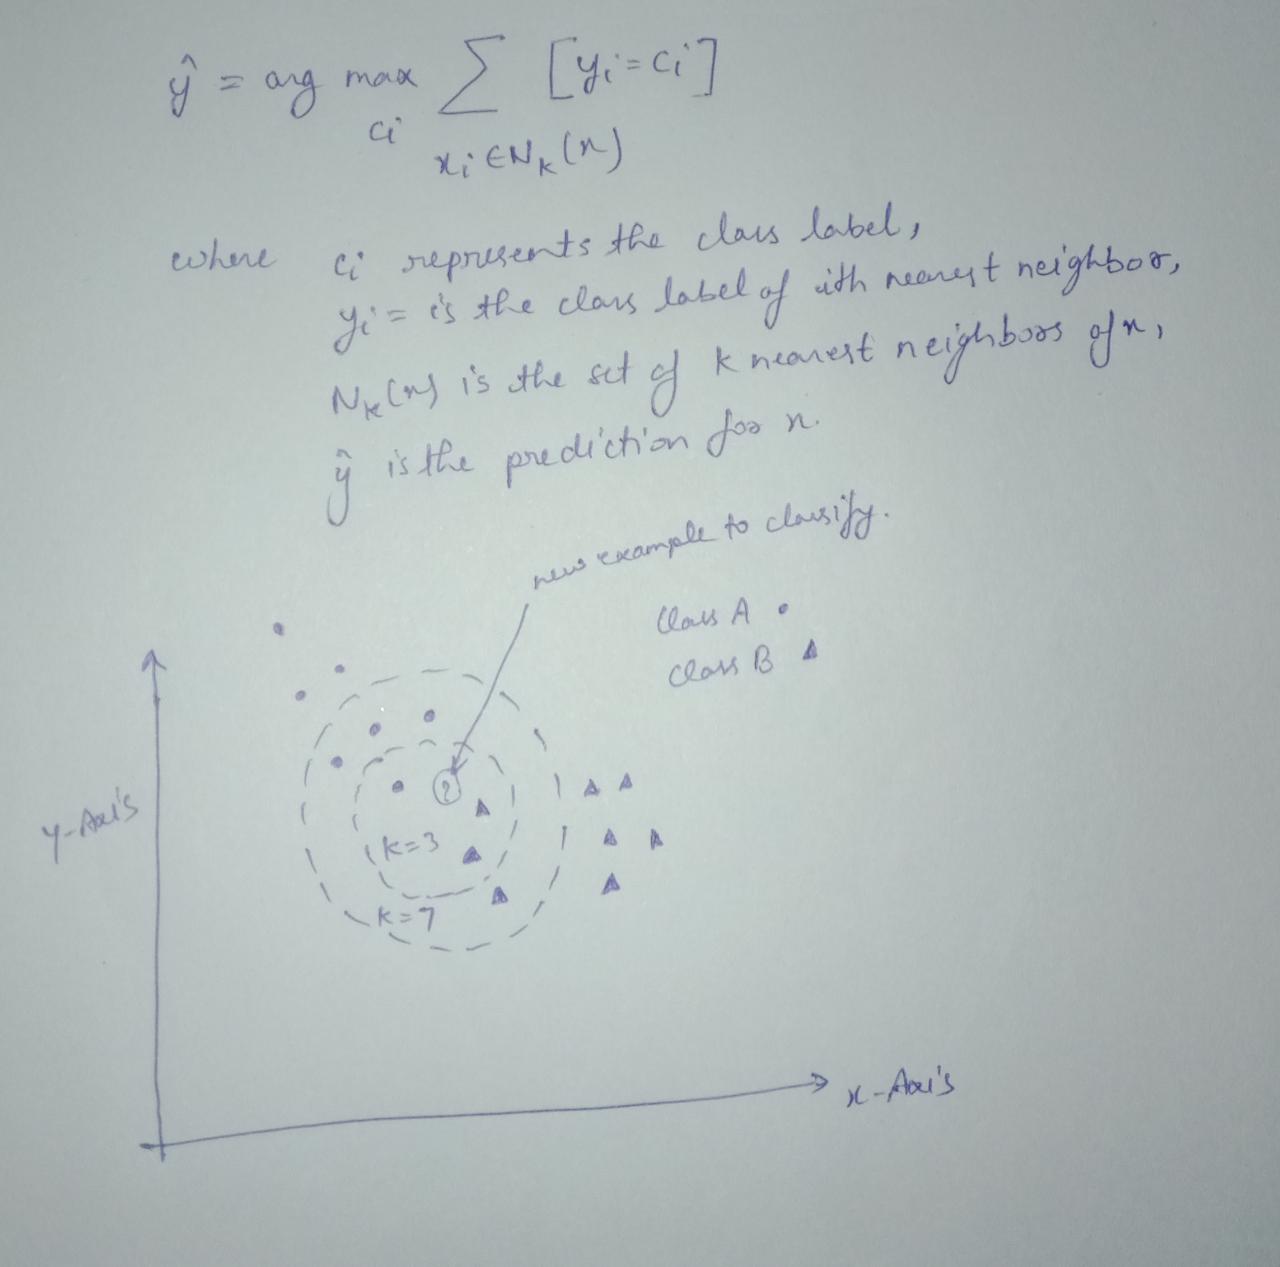 ŷ = arg max ∑ [yi = ci]
ci xi ∈ Nk(x)
where ci represents the class label,
yi = is the class label of ith nearest neighbor,
Nk(x) is the set of k nearest neighbors of x,
ŷ is the prediction for x.
new example to classify.
Class A
Class B
?
k=3
k=7
Y-Axis
x-Axis